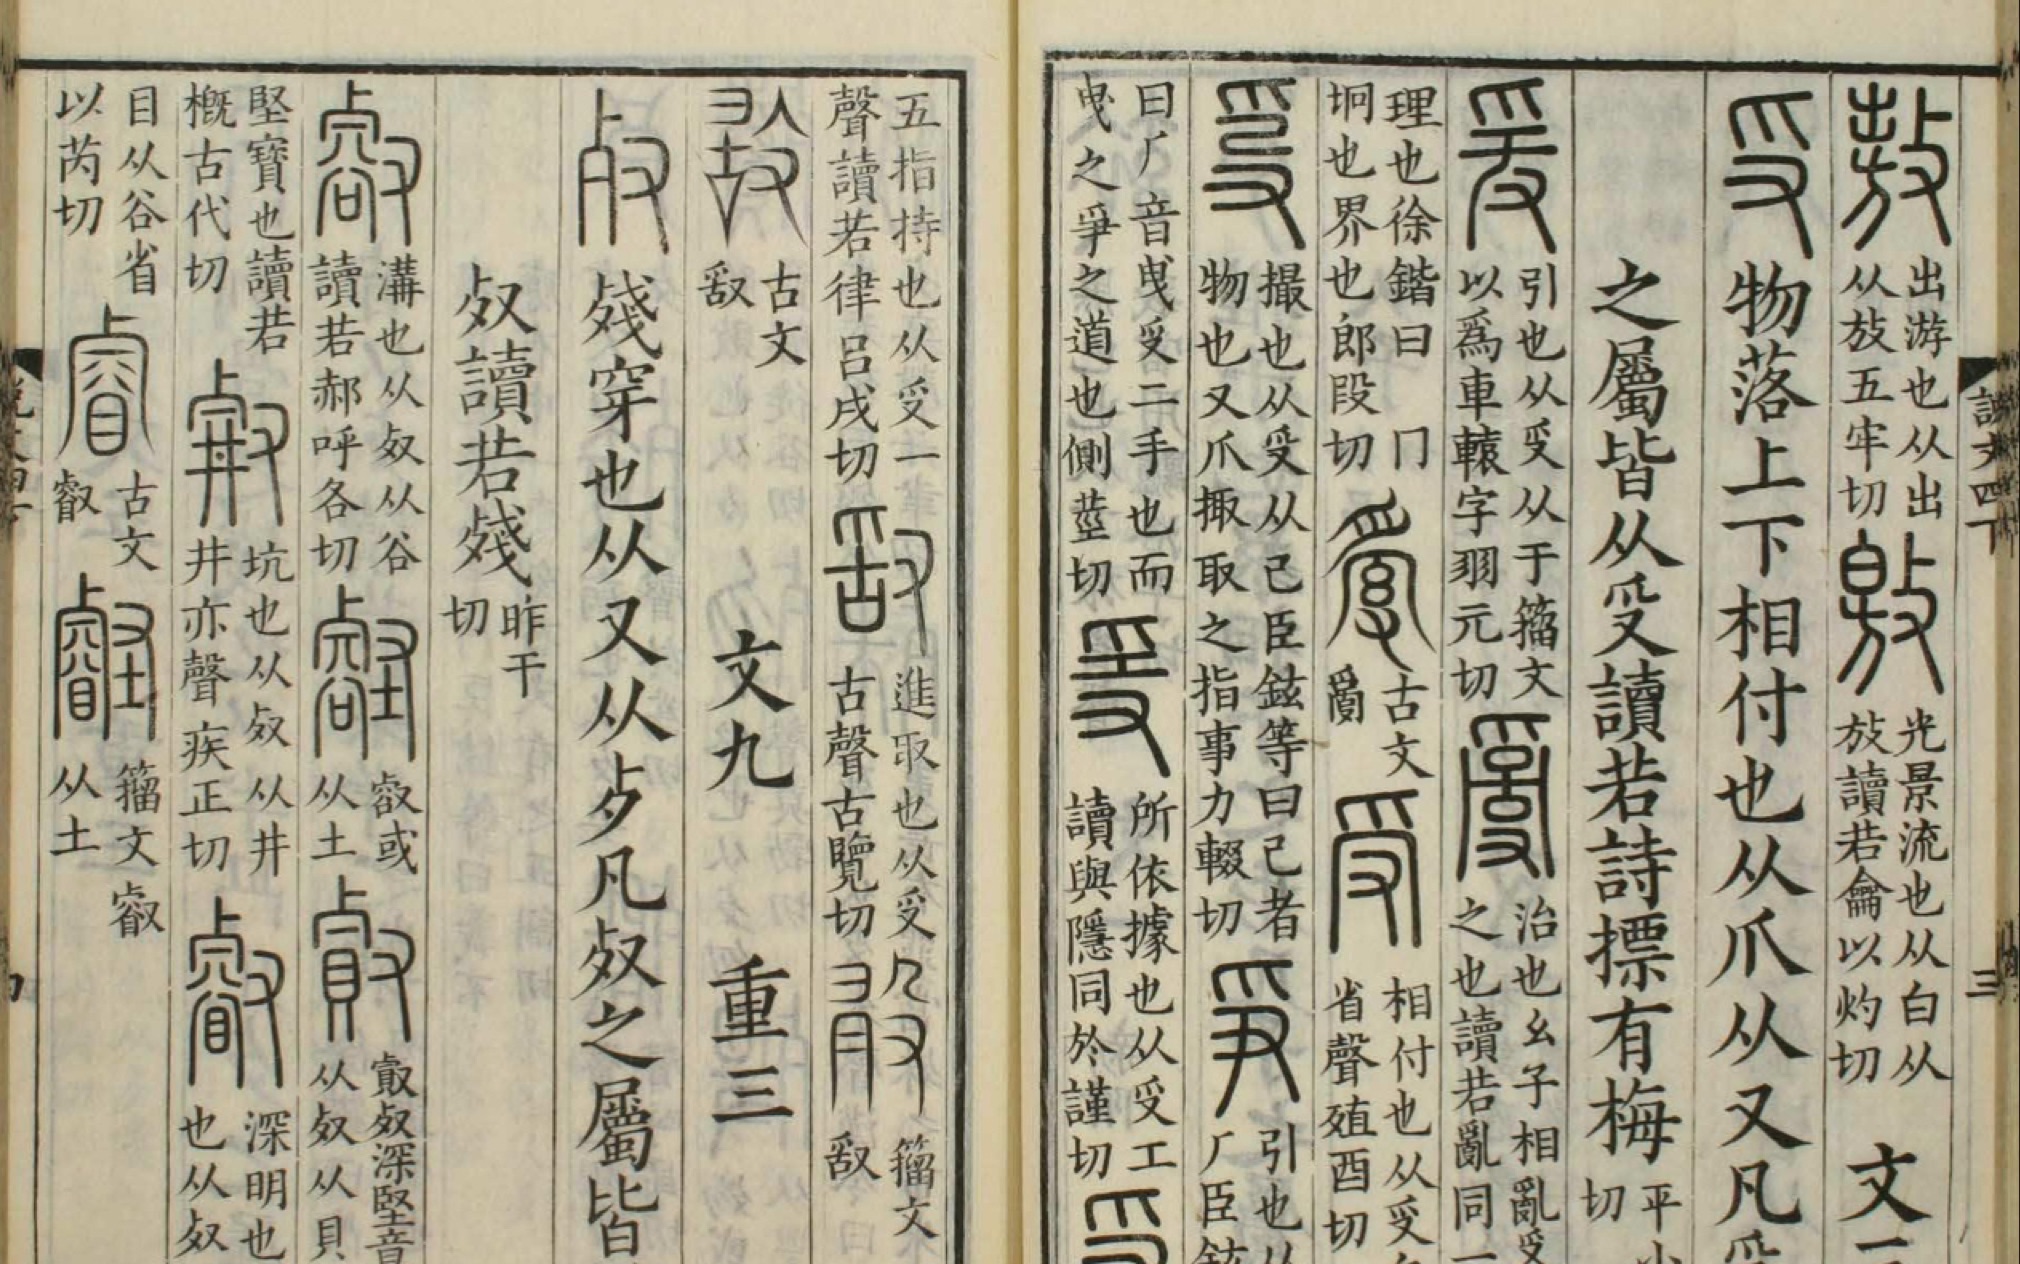 敖出游也从出从放五牢切敫光景流也从白从放讀若龠以灼切文三
𠬪物落上下相付也从爪从又凡𠬪
之屬皆从𠬪讀若詩摽有梅平小切
爰引也从𠬪从于籀文以爲車轅字羽元切𤔔治也幺子相亂𠬪之也讀若亂同一
理也徐鍇曰冂坰也界也郎段切古文𤔔受相付也从𠬪省聲殖酉切
𤔍撮也从𠬪从己臣鉉等曰己者物也又爪掫取之指事力輟切爭引也从厂臣鉉
曰厂音曳𠬪二手也而曳之爭之道也側莖切𤔌所依據也从𠬪工讀與隱同於謹切
五指持也从𠬪一聲讀若律呂戌切𠭖進取也从𠬪古聲古覽切籀文𠭖
古文𠭖文九重三
𣦼殘穿也从又从歺凡𣦼之屬皆
𣦼讀若殘昨干切
㕡溝也从𣦼从谷讀若郝呼各切壑㕡或从土𣦼深堅意从𣦼从貝
堅寶也讀若概古代切坑也从𣦼从井井亦聲疾正切叡深明也从𣦼
目从谷省以芮切睿古文叡壡籀文叡从土